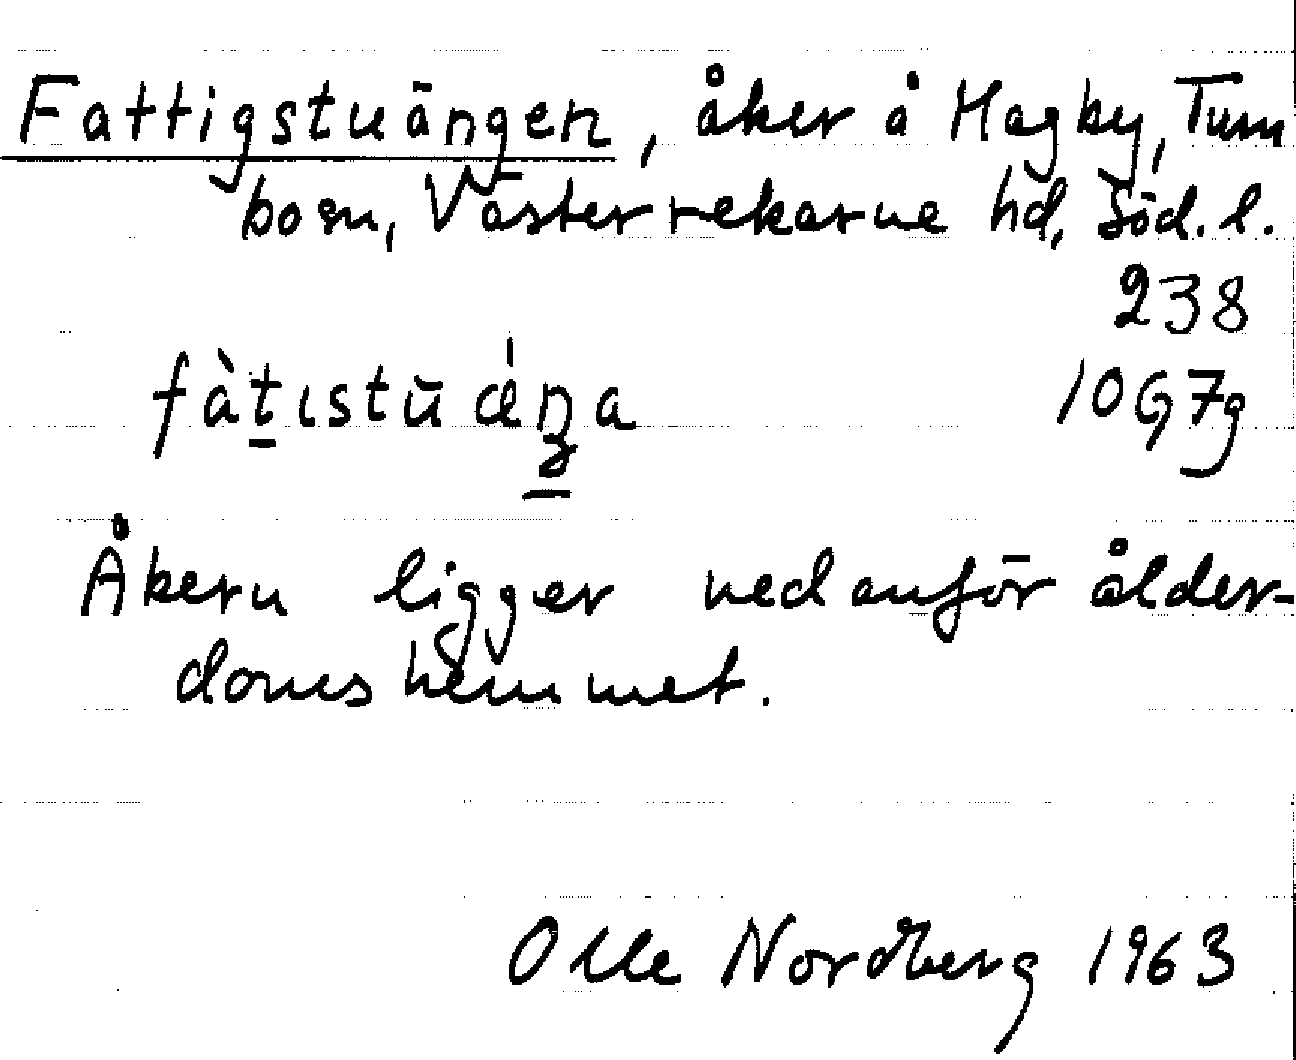 Fattigstuängen, åker å Hagby, Tum
bosn, Västerrekarne hd, Söd. l.
238
fàt̲ıstūǽŋ̲a
10G7g
Åkern ligger nedanför ålder-
domshemmet.
Olle Nordberg 1963